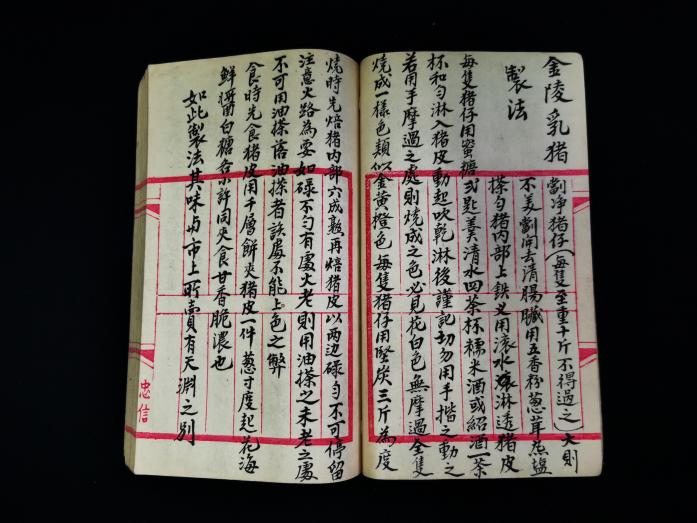 金陵乳猪
製法
劏净猪仔(每隻至重十斤不得過之)大則
不美劏開去清腸臟用五香粉葱茸鹽
搽勻猪內部上鉄叉用滾水淋透猪皮
每隻猪仔用蜜糖弍匙羹清水四茶杯糯米酒或紹酒一茶
杯和勻淋入猪皮動起吹乾淋後謹記切勿用手揩之動之
若用手摩過之處則燒成之色必見花白色無摩過全隻
燒成一樣色類似金黃橙色每隻猪仔用堅炭三斤為度
燒時先焙猪內部六成熟再焙猪皮以两边碌勻不可停留
注意火路為要如碌不勻有處火老則用油搽之未老之處
不可用油搽落油搽者該處不能上色之弊
食時先食猪皮用千層餅夾猪皮一件葱寸度起花海
鮮醬白糖各少許同夾食甘香脆濃也
如此製法其味与市上所賣有天淵之別
忠信